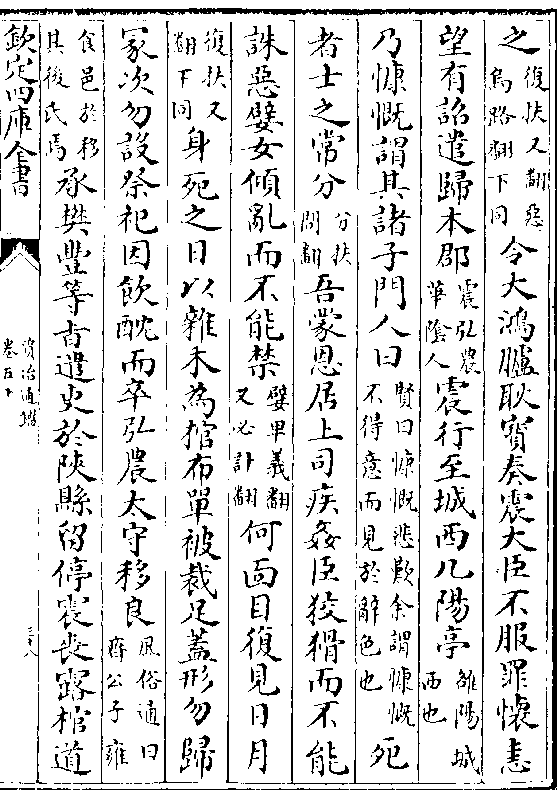 之復扶又翻惡烏路翻下同令大鴻臚耿寳奏震大臣不服罪懷恚
望有詔遣歸本郡震弘農華隂人震行至城西几陽亭雒陽城西也
乃慷慨謂其諸子門人曰賢曰慷慨悲歎余謂慷慨不得意而見於辭色也死
者士之常分分扶問翻吾蒙恩居上司疾姦臣狡猾而不能
誅惡嬖女傾亂而不能禁嬖卑義翻又必計翻何面目復見日月
復扶又翻下同身死之日以雜木為棺布單被裁足蓋形勿歸
冢次勿設祭祀因飲酖而卒弘農太守移良風俗通曰齊公子雍
食邑於移其後氏焉承樊豐等㫖遣吏於陜縣留停震喪露棺道
欽定四庫全書
資治通鑑
卷五十
三十八